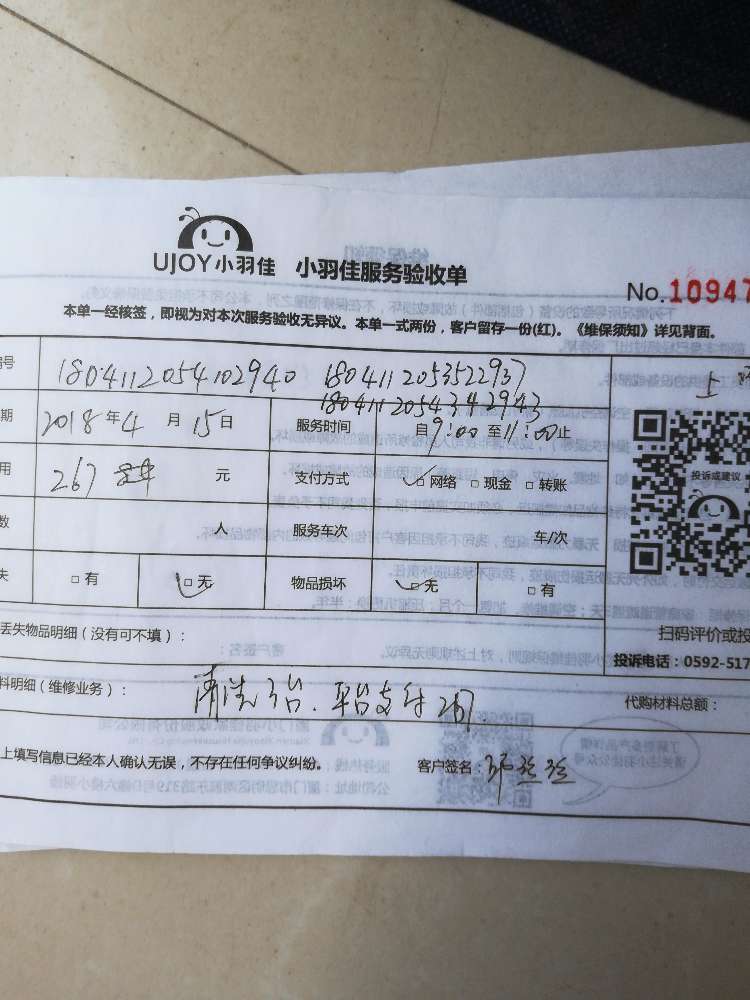 UJOY小羽佳 小羽佳服务验收单
No.10947
本单一经核签，即视为对本次服务验收无异议。本单一式两份，客户留存一份(红)。《维保须知》详见背面。
号 1804112054102940 1804112053522937
1804112054342943
期 2018年4月15日 服务时间 自9:00至11:00止
用 267 元 支付方式 □网络 □现金 □转账
数 人 服务车次 车/次
失 □有 □无 物品损坏 □无 □有
投诉或建议
扫码评价或投
丢失物品明细（没有可不填）：
投诉电话：0592-517
料明细（维修业务）： 清洗3台.平台支付267
代购材料总额：
上填写信息已经本人确认无误，不存在任何争议纠纷。 客户签名：